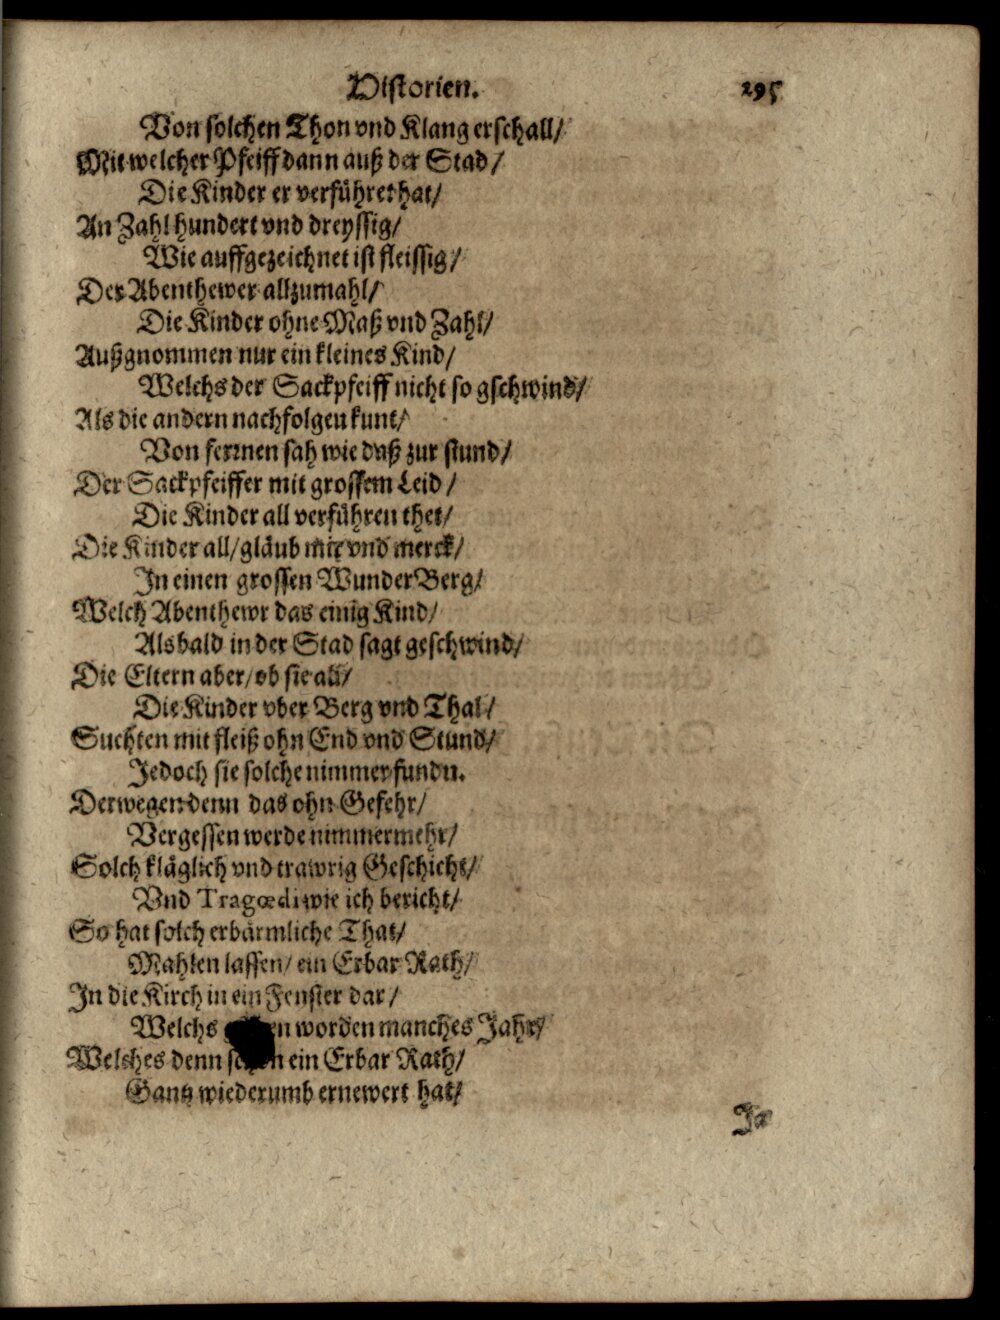 Historien. 295
Von solchen Thon vnd Klang erschall/
Mit welcher Pfeiff dann auß der Stad/
Die Kinder er verführet hat/
An Zahl hundert vnd dreyssig/
Wie auffgezeichnet ist fleissig/
Der Abenthewer allzumahl/
Die Kinder ohne Maß vnd Zahl/
Außgnommen nur ein kleines Kind/
Welchs der Sackpfeiff nicht so gschwind/
Als die andern nachfolgeu kunt/
Von fermen sah wie daß zur stund/
Der Sackpfeiffer mit grossem Leid/
Die Kinder all verführen thet/
Die Kinder all/gläub mir vnd merck/
In einen grossen Wunder Berg/
Welch Abenthewr das einig Kind/
Als bald in der Stad sagt geschwind/
Die Eltern aber/ob sie all/
Die Kinder vber Berg vnd Thal/
Suchten mit fleiß ohn End vnd Stund/
Jedoch sie solche nimmer fundn.
Derwegen denn das ohn Gefehr/
Vergessen werde nimmermehr/
Solch kläglich vnd trawrig Geschicht/
Vnd Tragœdi wie ich bericht/
So hat solch erbärmliche That/
Mahlen lassen/ ein Erbar Rath/
In die Kirch in ein Fenster dar/
Welchs worden manches Jahr/
Welches denn ein Erbar Rath/
Gantz wiederumb ernewert hat/
Ja